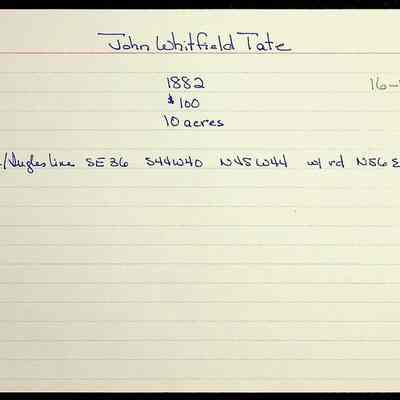 John Whitfield Tate
1882
16-
$100
10 acres
/Hughes line SE 36 S44W40 N45W44 w/ rd N56E